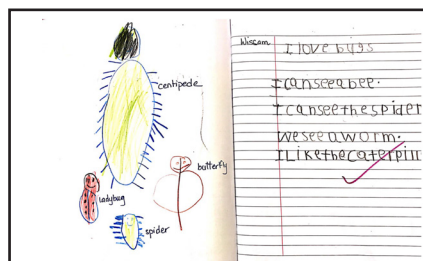 centipede
ladybug
butterfly
spider
Wissam
I love bugs
I can see a bee.
I can see the spider
we see a worm.
I Like the caterpill